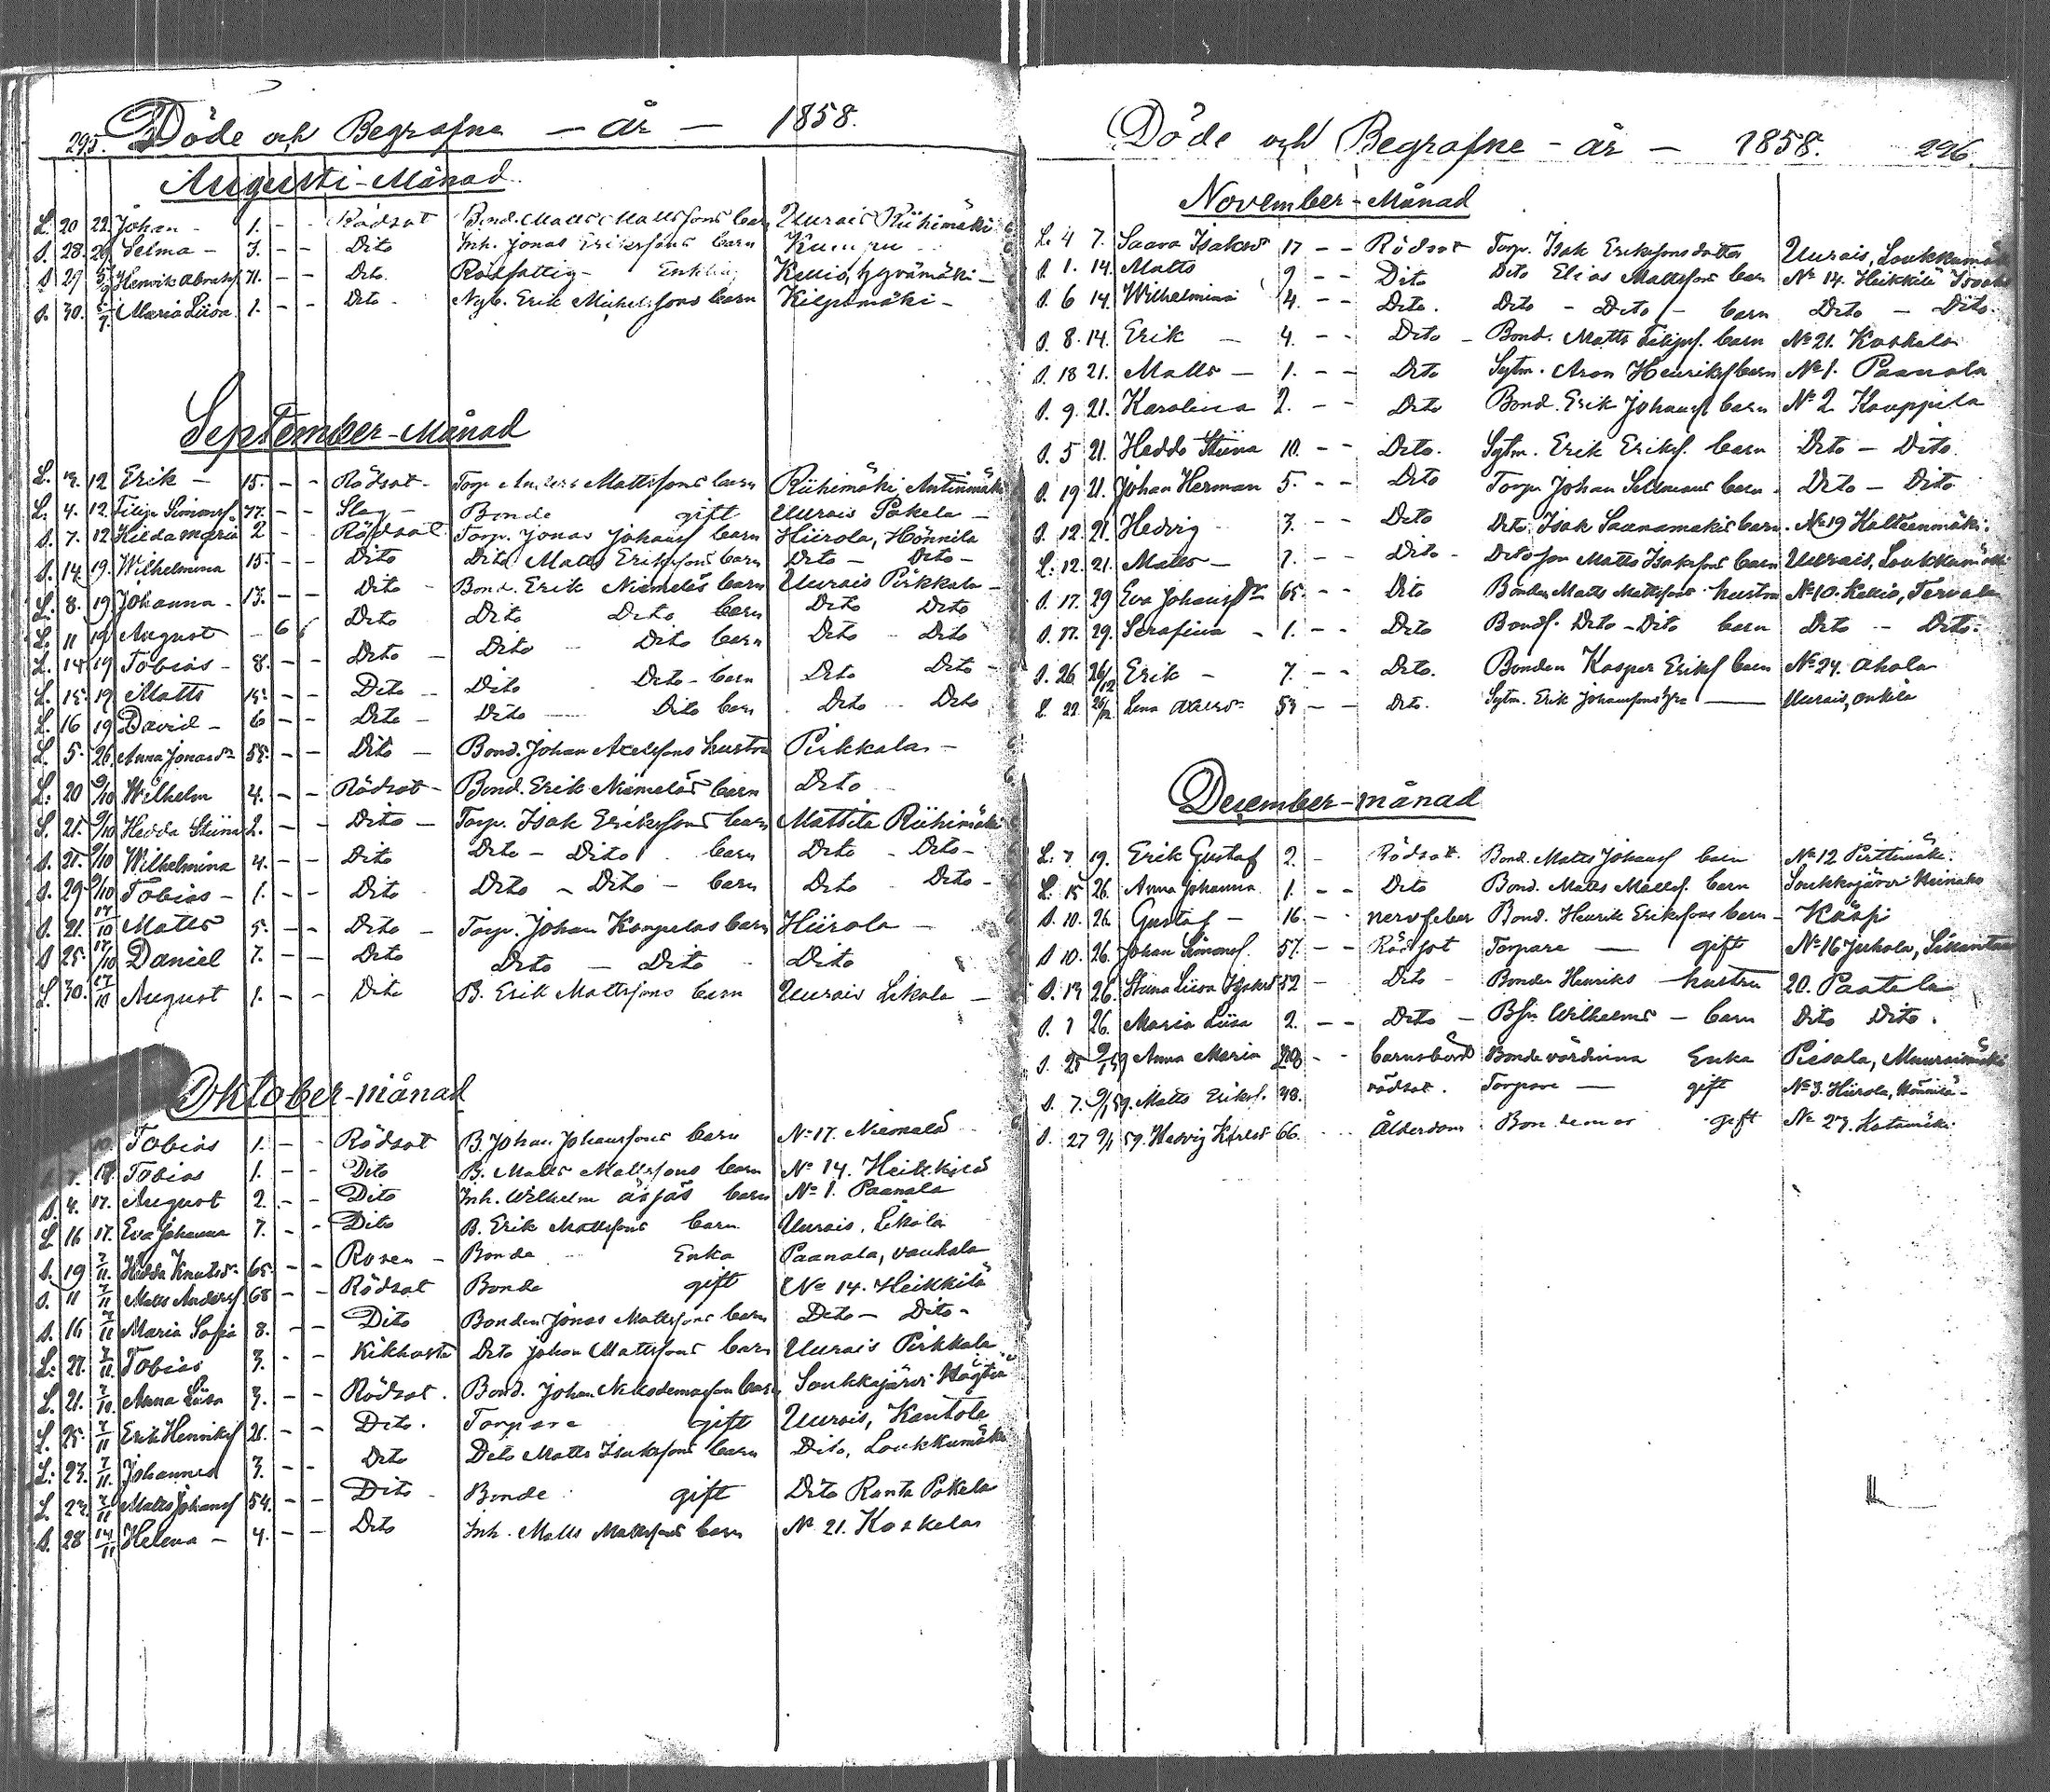 295. Döde och Begrafne — år — 1858.
Augusti-Månad.
L. 20 22. Johan - 1. - - Rödsot Bond. Matts Mattsfons barn Uurais Riihimäki
S. 28. 29 Selma - 3. - - Dito Inh. Jonas Eriksfons barn Kumpu
S 29 Henrik Abrahf 71. - - Dito. Rotfattig - Enkling Kellio, Hyvämäki -
S. 30. 5/7. Maria Liisa 1. - - Dito - Nyb. Erik Michelsfons barn Kilpimäki -
September-Månad
L. 12 Erik - 15. - - Rödsot - Torp. Anders Mattsfons barn Riihimäki, Antinmäki
L. 4. 12. Filip Simonsf 77. - - Slag - Bonde gift Uurais Pökelä -
S. 7. 12 Hilda Maria 2 - - Rödsot Torp. Jonas Johansf barn Hiirola, Hönnilä
S. 14. 19. Wilhelmina 15. - - Dito Dito Matts Eriksfons barn Dito - Dito -
L. 8. 19 Johanna - 13. - - Dito - Bond. Erik Niemeläs barn Uurais Pirkkala -
L. 11 19 August - 6 Dito Dito Dito barn Dito Dito
L. 14 19 Tobias - 8. - - Dito - Dito - Dito barn Dito - Dito
L. 15. 19 Matts 15. - - Dito - Dito Dito - barn Dito Dito -
L. 16 19 David - 6 - - Dito - Dito — Dito barn Dito - Dito
L. 5. 26. Anna Jonasdr 55. - - Dito - Bond. Johan Axelsfons hustru Pirkkala -
L. 20 9/10 Wilhelm 4. - - Rödsot - Bond. Erik Niemeläs barn Dito
S. 21. 9/10 Hedda Stiina 2. - - Dito - Torp. Isak Eriksfons barn Mattila Riihimäki
S. 21. 9/10 Wilhelmina 4. - - Dito Dito - Dito barn Dito - Dito -
S. 29 9/10 Tobias - 1. - - Dito Dito - Dito - barn Dito - Dito -
S. 21. 17/10 Matts 5. - - Dito - Torp. Johan Kanpelas barn Hiirola -
S 25. 17/10 Daniel 7. - - Dito Dito - Dito - Dito
L. 30. 17/10 August 1. - - Dito B. Erik Mattsfons barn Uurais Likala -
Oktober-månad
10. Tobias 1. - - Rödsot B. Johan Johansfons barn No 17. Niemelä
7. Tobias 1. - - Dito B. Matts Mattsfons barn No 14. Heikkilä
S. 4. 17. August 2. - - Dito Inh. Wilhelm Äijäs barn No 1. Paanala
L 16 17. Eva Johanna 7. - - Dito B. Erik Mattsfons barn Uurais, Likala
S. 19 7/11. Hedda Knutsdr 65. - - Rosen - Bonde Enka Paanala, Vauhala
S. 11 7/11 Matts Andersf 68 - - Rödsot Bonde gift No 14. Heikkilä
S. 16 7/11 Maria Sofia 8. - - Dito Bonden Jonas Mattsfons barn Dito - Dito -
L. 27. 7/11. Tobias 3. - - Kikhosta Dito Johan Mattsfons barn Uurais Pirkkala
L. 21. Anna Liisa 3. - - Rödsot. Bond. Johan Nikodemusfon barn Soukkajärvi
L. 25. 7/11 Erik Henriksf 26. - - Dito. Torpare gift Uurais, Kantola
L. 23. 7/11. Johannes 3. - - Dito Dito Matts Isaksfons barn Dito, Loukkumäki
L. 23. 7/11 Matts Johansf 54. - - Dito - Bonde gift Dito Ranta Pökelä
S. 28 14/11 Helena - 4. - - Dito Inh. Matts Mattsfons barn No 21. Koskela
Döde och Begrafne - år — 1858. 296.
November-Månad
L. 4 7. Saara Isaksdr 17 - - Rödsot Torp. Isak Eriksfons dotter Uurais, Loukkumäki
S 1. 14. Matts 9 - - Dito Dito Elias Mattsfons barn No 14. Heikkilä
S. 6 14. Wilhelmina 4. - - Dito. Dito - Dito - barn Dito - Dito.
S. 8. 14. Erik - 4. - - Dito - Bond. Matts Filipsf. barn No 21. Koskela
S. 18 21. Matts - 1. - - Dito Sytm. Aron Henriksf barn No 1. Paanala
S. 9. 21. Karolina 2. - - Dito Bond. Erik Johansf barn No 2 Kauppila
S. 5 21. Hedda Stiina 10. - - Dito. Sytm. Erik Eriksf. barn Dito - Dito
S. 19 21. Johan Herman 5. - - Dito Torp. Johan Selmans barn - Dito - Dito
S. 12. 21. Hedvig 3. - - Dito Dito Isak Saanamäkis barn. No 19 Kalteenmäki.
L. 12. 21. Matts - 7. - - Dito - Matts Isaksfons barn Uurais, Loukkumäki
S. 17. 29 Eva Johansdr 65. - - Dito Bonden Matts Mattsfons hustru No 10. Kellio, Tervala
S. 17. 29. Serafina - 1. - - Dito Bondf. Dito - Dito barn Dito - Dito.
S. 26 26/12 Erik - 7. - - Dito. Bonden Kasper Eriksf barn No 24. Ahola
L 22. 26/12 Lena 53 - - Dito. Sytm. Erik Johansfons — Uurais, Onkila
December-månad
L. 7 19. Erik Gustaf 2. - Rödsot. Bond. Matts Johansf barn No 12 Pirttimäki.
L. 15 26. Anna Johanna 1. - - Dito Bond. Matts Mattsf. barn Soukkajärvi Heinäko
S. 10. 26. Gustaf - 16. - - nervfeber Bond. Henrik Eriksfons barn - Käspi
S 10. 26. Johan Simonsf. 57. - - Rödsot Torpare — gift No 16 Juhola,
S. 19 26. Stina Liisa Isaksdr 52 - Dito - Bonden Henriks hustru 20. Paatela
S. 7 26. Maria Liisa 2. - - Dito - Bfn Wilhelms - barn Dito Dito.
S. 25 9/1 59 Anna Maria - - barnsbörd Bonde värdinna Enka Piesala, Muuraismäki
S. 7. 9/1 59. Matts Eriksf. 48. rödsot. Torpare — gift No 3. Hiirola, Hönnilä -
S. 27 9/1 59. Hedvig 66. Ålderdom gift No 27. Katamäki